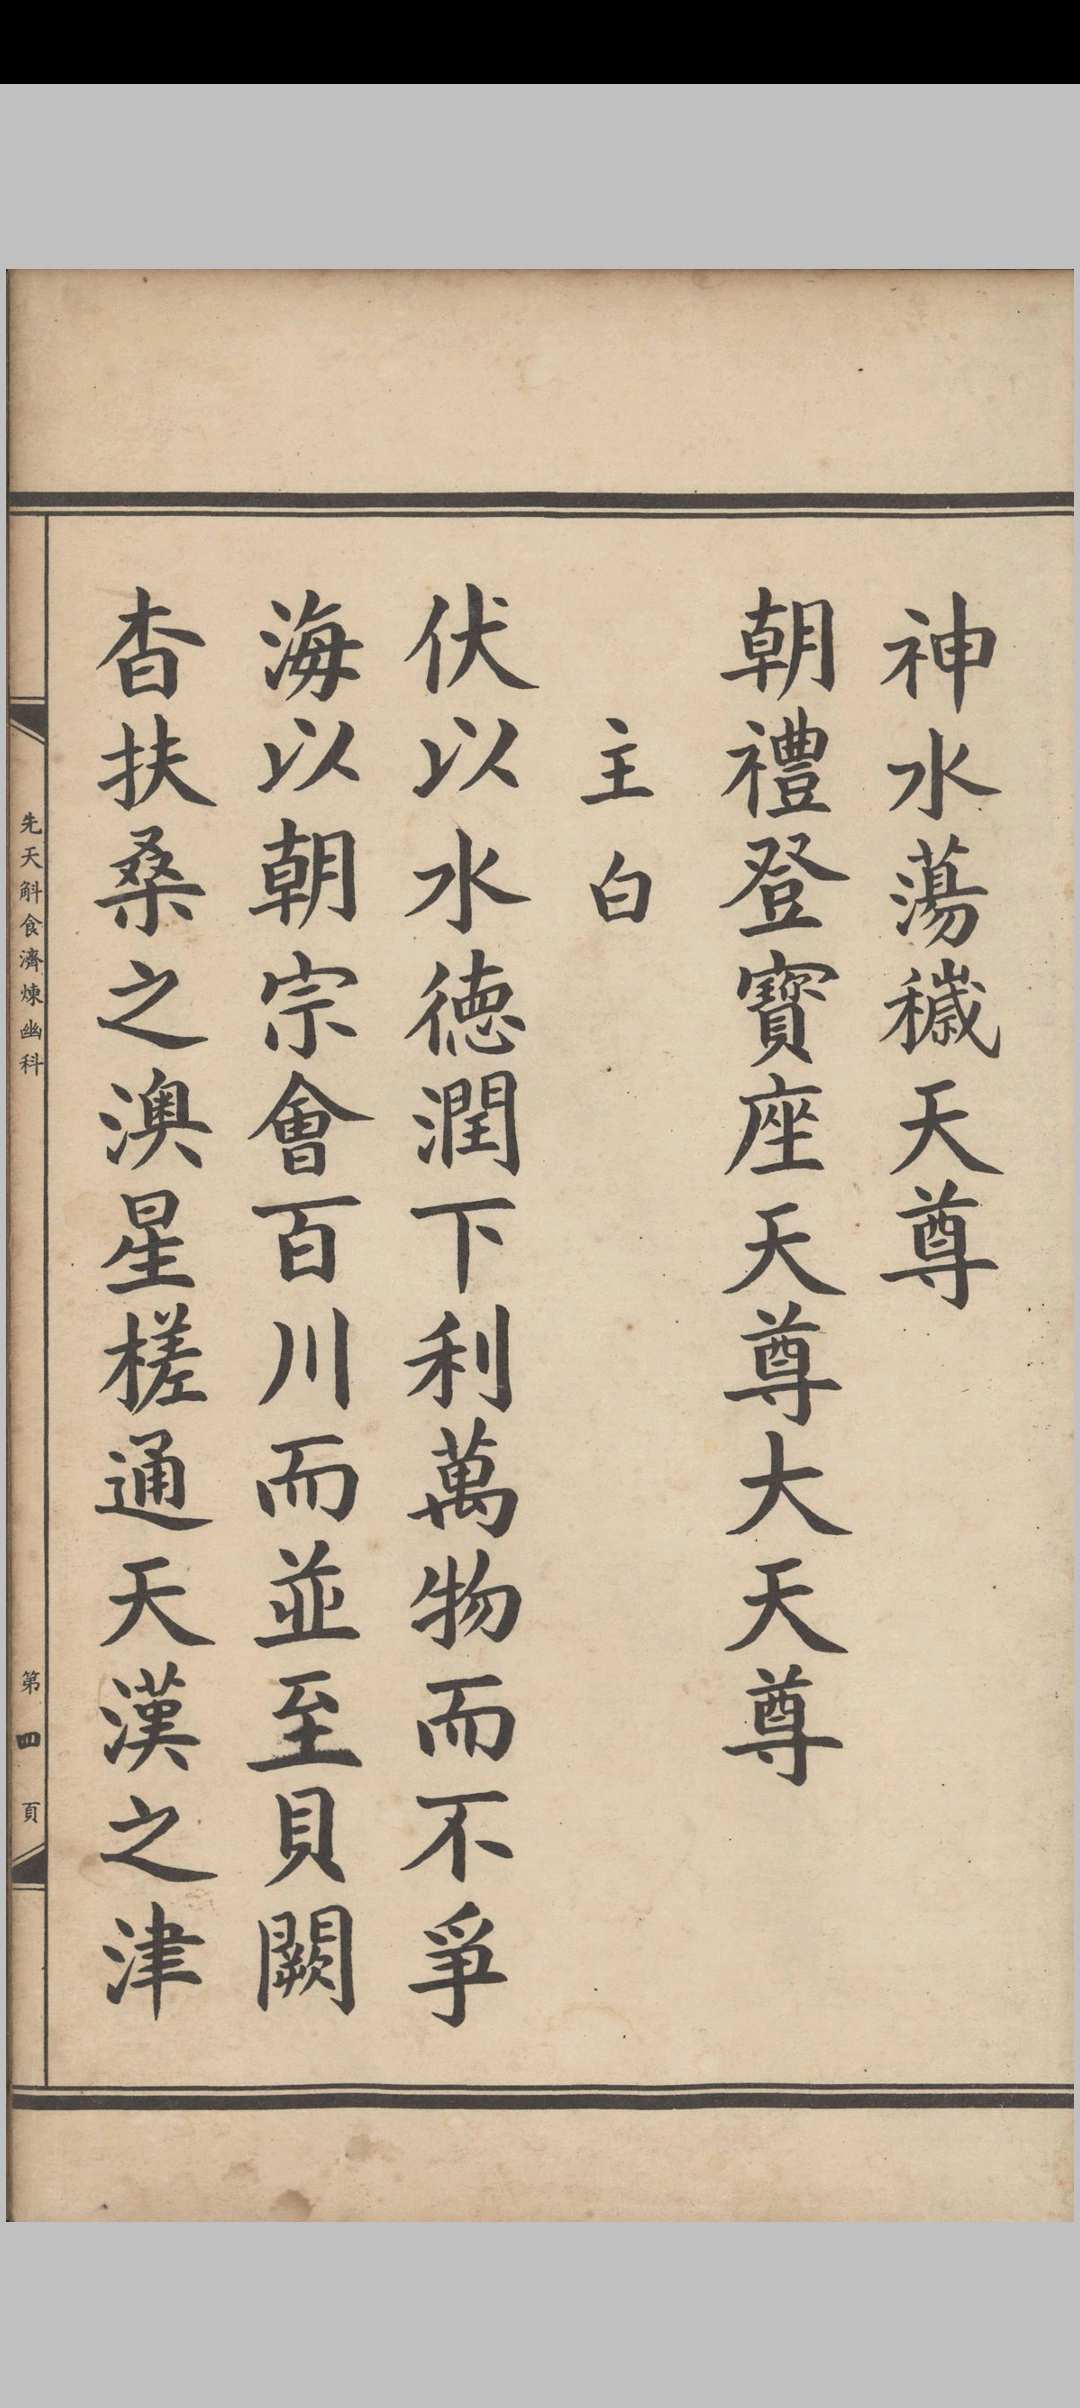 神水蕩穢天尊
朝禮登寶座天尊大天尊
主白
伏以水德潤下利萬物而不爭
海以朝宗會百川而並至貝闕
杳扶桑之澳星槎通天漢之津
先天斛食濟煉幽科
第四頁